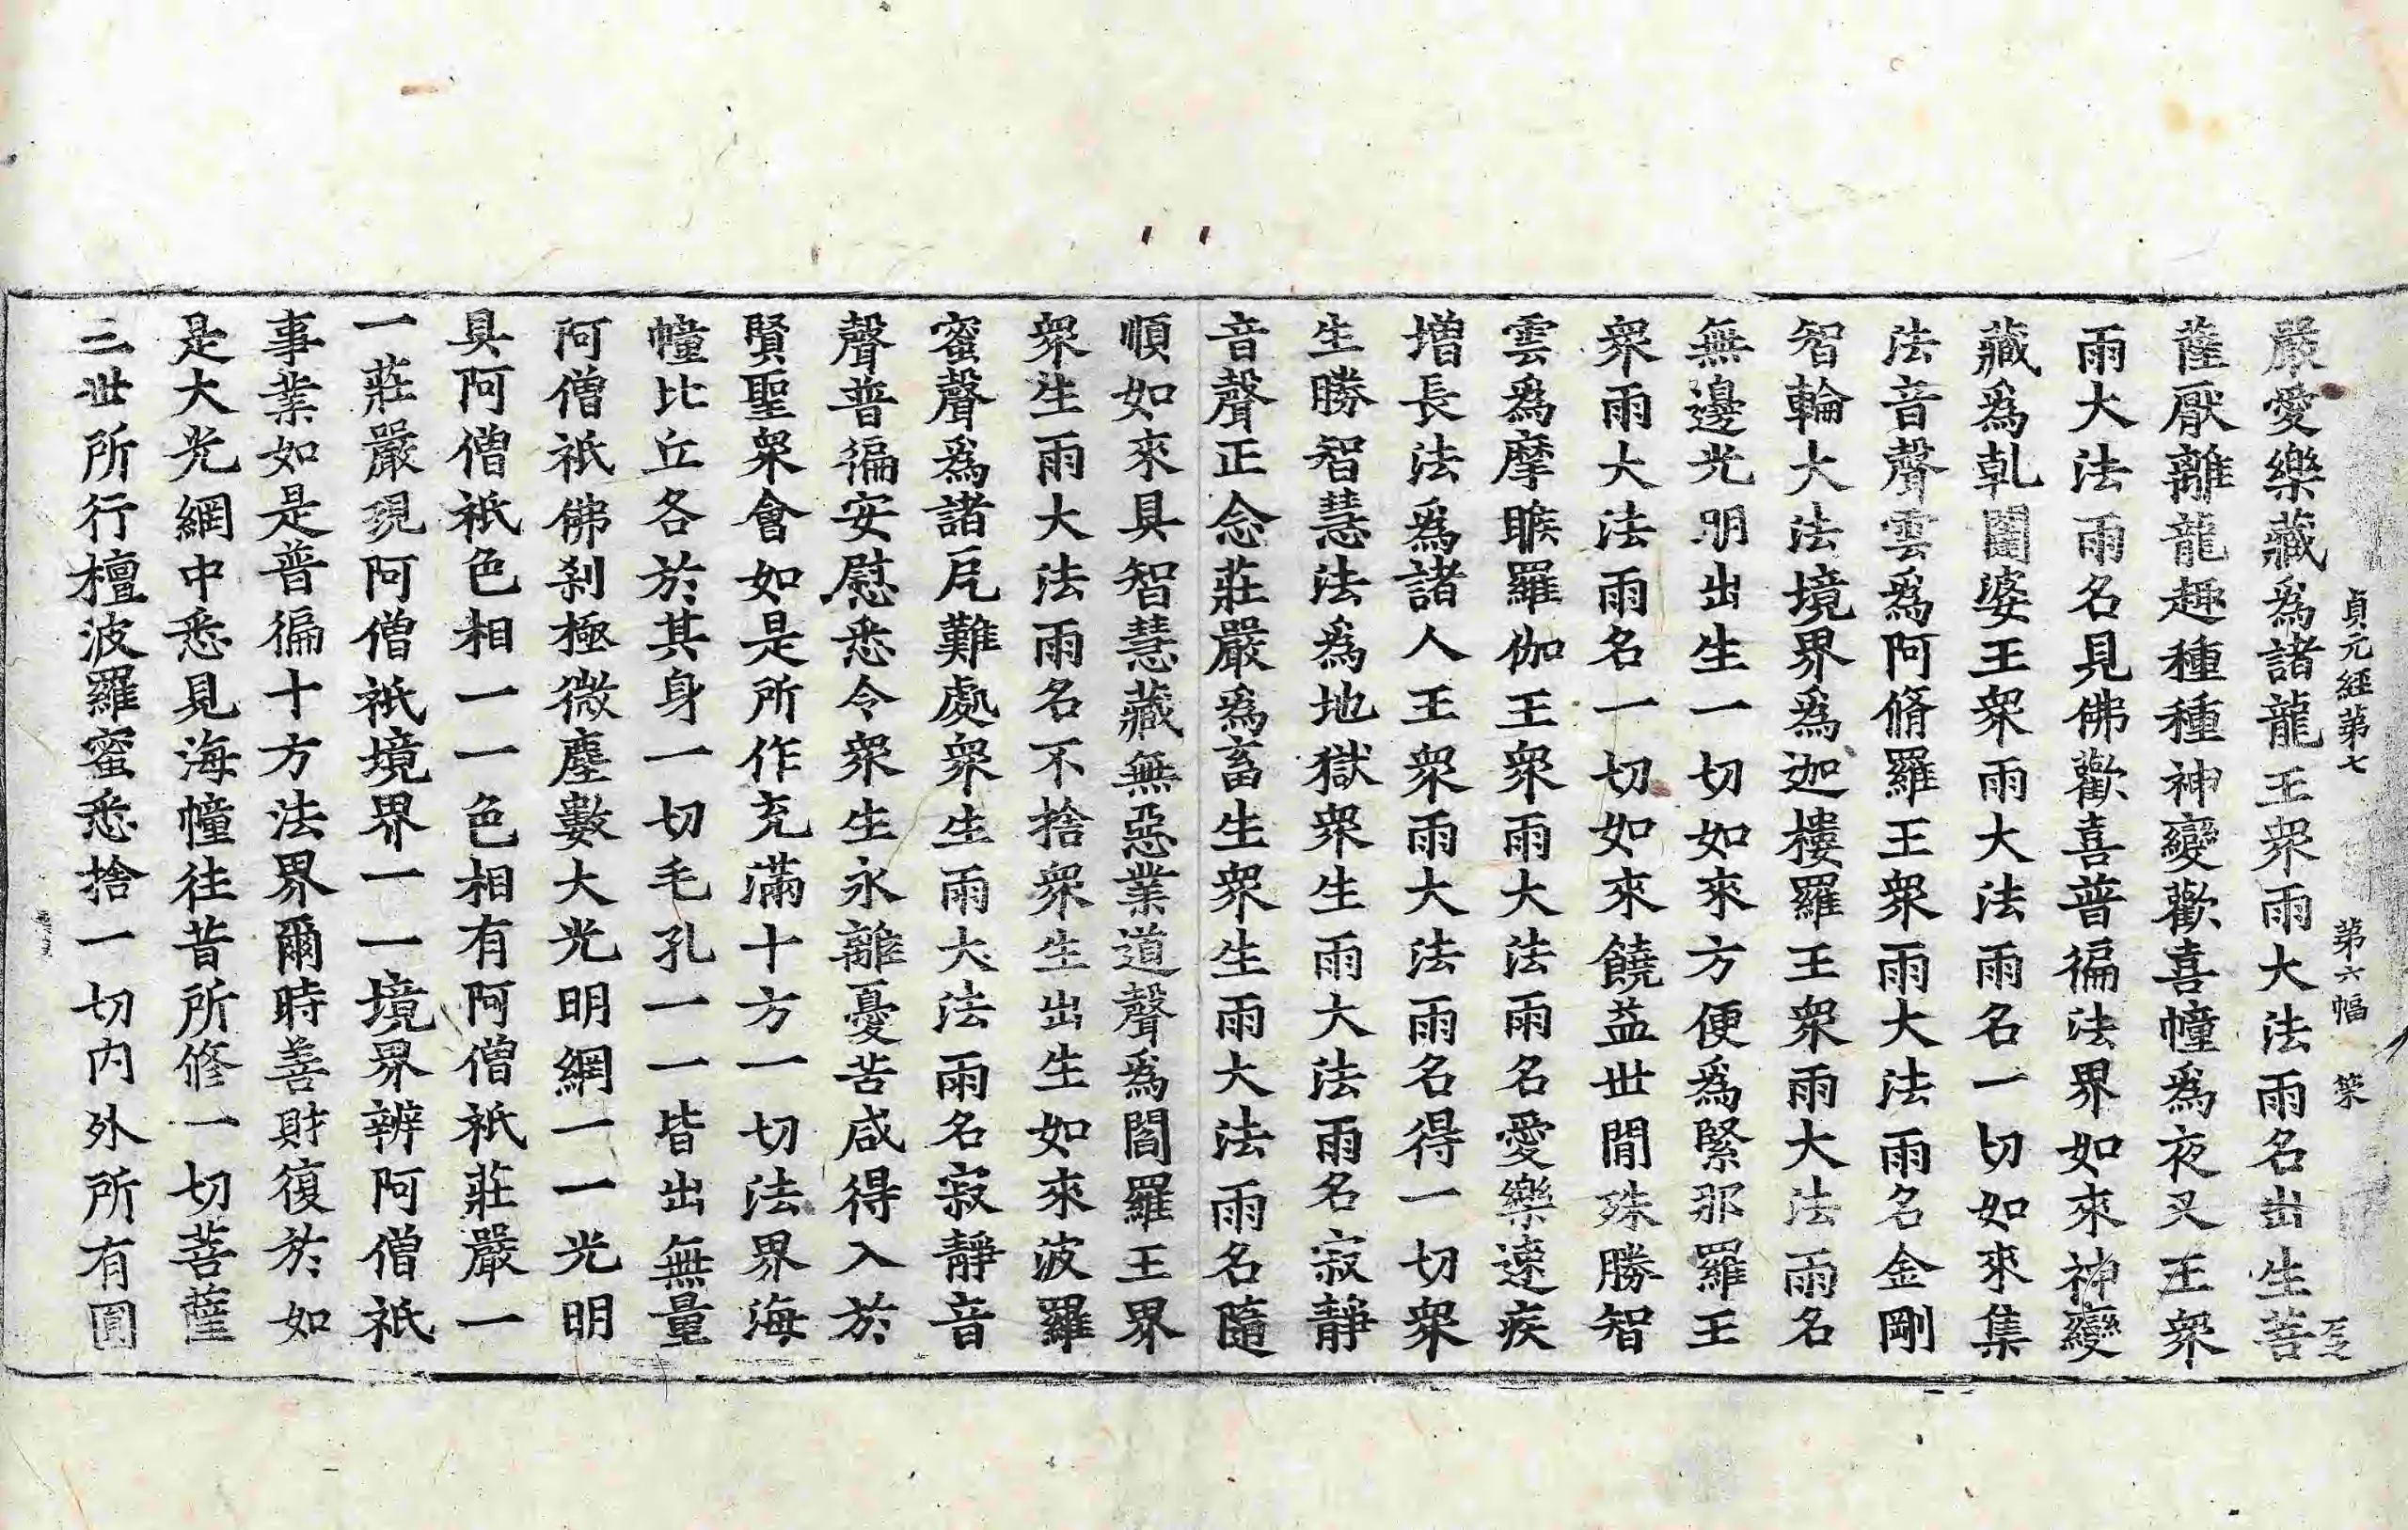 貞元經第七 第六幅 榮
嚴愛樂藏爲諸龍王眾雨大法雨名出生菩
薩厭離龍趣種種神變歡喜幢爲夜叉王眾
雨大法雨名見佛歡喜普徧法界如來神變
藏爲乹闥婆王眾雨大法雨名一切如來集
法音聲雲爲阿脩羅王眾雨大法雨名金剛
智輪大法境界爲迦樓羅王眾雨大法雨名
無邊光明出生一切如來方便爲緊那羅王
眾雨大法雨名一切如來饒益世閒殊勝智
雲爲摩睺羅伽王眾雨大法雨名愛樂速疾
增長法爲諸人王眾雨大法雨名得一切衆
生勝智慧法爲地獄眾生雨大法雨名寂靜
音聲正念莊嚴爲畜生眾生雨大法雨名隨
順如來具智慧藏無惡業道聲爲閻羅王界
眾生雨大法雨名不捨眾生出生如來波羅
蜜聲爲諸戹難處衆生雨大法雨名寂靜音
聲普徧安慰悉令衆生永離憂苦咸得入於
賢聖衆會如是所作充滿十方一切法界海
幢比丘各於其身一切毛孔一一皆出無量
阿僧祇佛刹極微塵數大光明網一一光明
具阿僧祇色相一一色相有阿僧祇莊嚴一
一莊嚴現阿僧祇境界一一境界辨阿僧祇
事業如是普徧十方法界爾時善財復於如
是大光網中悉見海幢往昔所修一切菩薩
三世所行檀波羅蜜悉捨一切内外所有圓